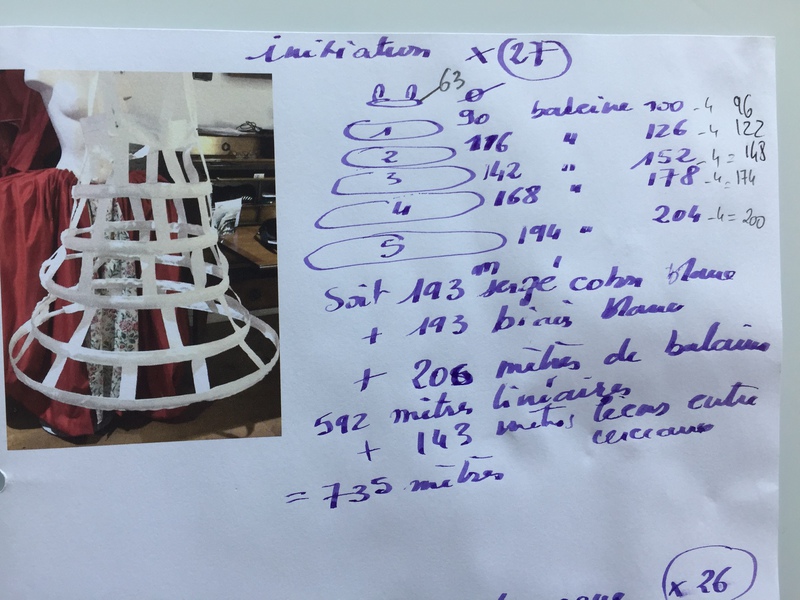 initiation x 27
63
90 baleine 100 - 4 96
1 116 " 126 - 4 122
2 142 " 152 - 4 = 148
3 168 " 178 - 4 = 174
4 194 " 204 - 4 = 200
5
Soit 193 m sergé coton blanc
+ 193 biais blanc
+ 206 mètres de baleine
592 mètres linéaires
+ 143 mètres liens entre
cerceaux
= 735 mètres
x 26